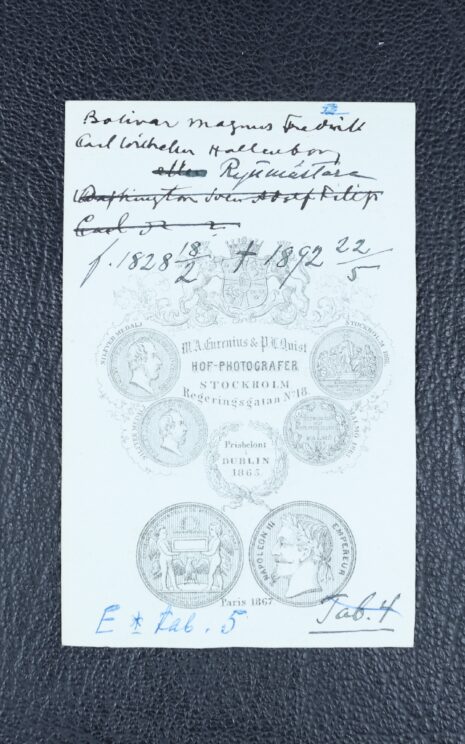 Bolivar Magnus Fredrik
Carl Wilhelm Hallenborg
eller Ryttmästare
Washington Sven Adolf Filip
Carl
f. 1828 18/2 † 1892 22/5
SILFVER MEDALJ
STOCKHOLM 1866
M.A. Eurenius & P.L. Quist
HOF-PHOTOGRAFER
STOCKHOLM
Regeringsgatan No 18.
MALMÖ 1865
Prisbelönt
DUBLIN
1865.
NAPOLEON III EMPEREUR
Paris 1867
Tab. 4
E * Tab. 5